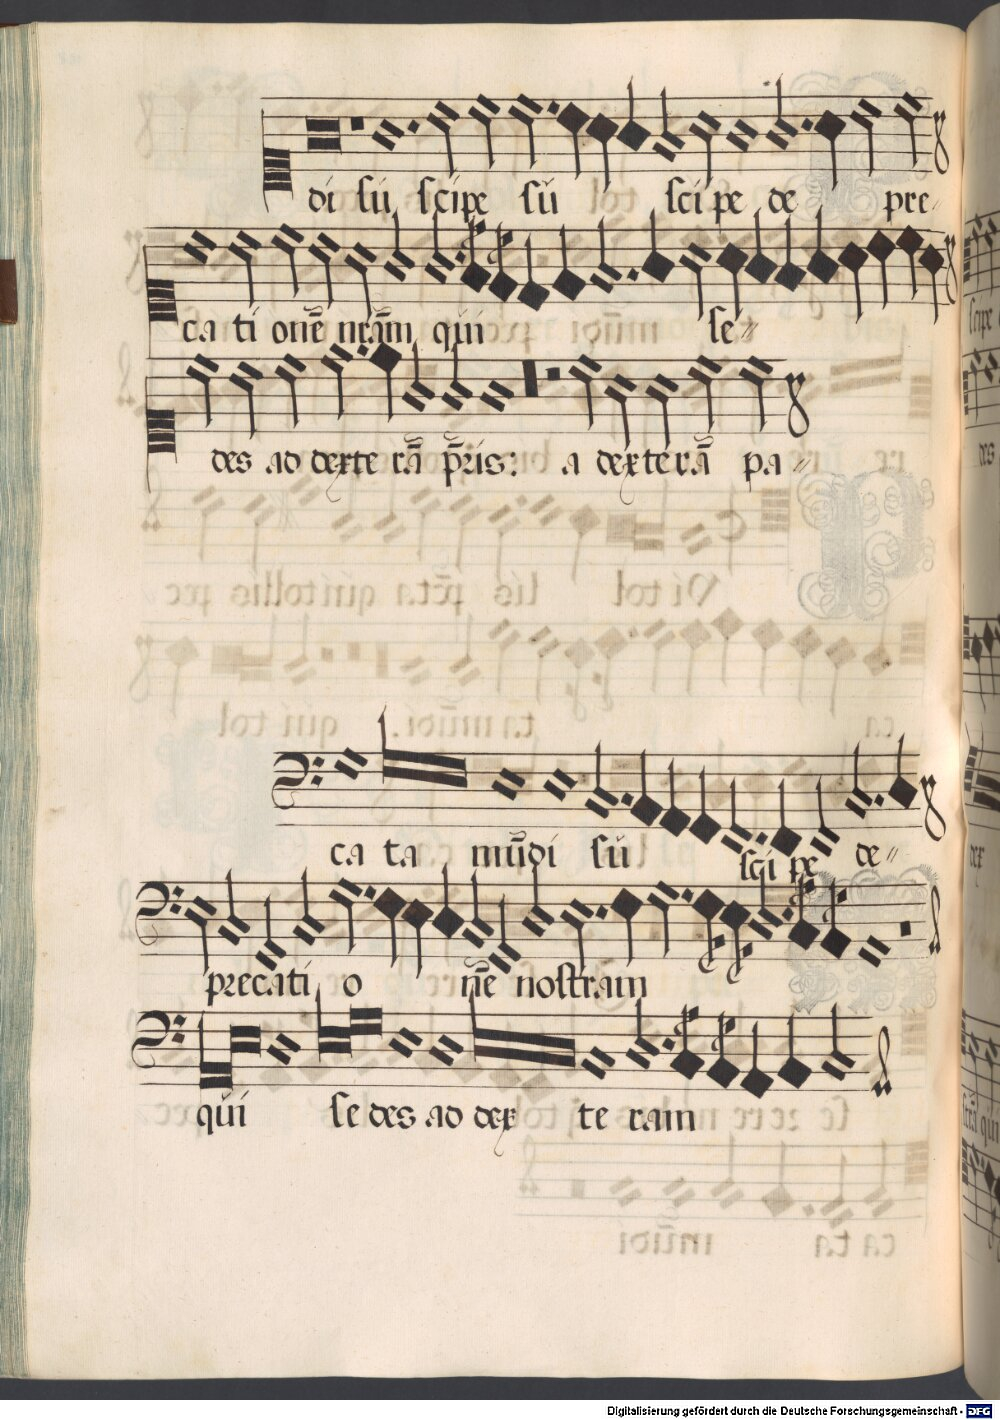 di sū scipe sū sci pe de pre-
ca ti onē nrām qui se〃
des ad dexte rā p̄ris: a dexterā pa〃
ca ta mūdi sū sci pe de〃
precati o nē nostram
qui se des ad dex te ram
Digitalisierung gefördert durch die Deutsche Forschungsgemeinschaft - DFG